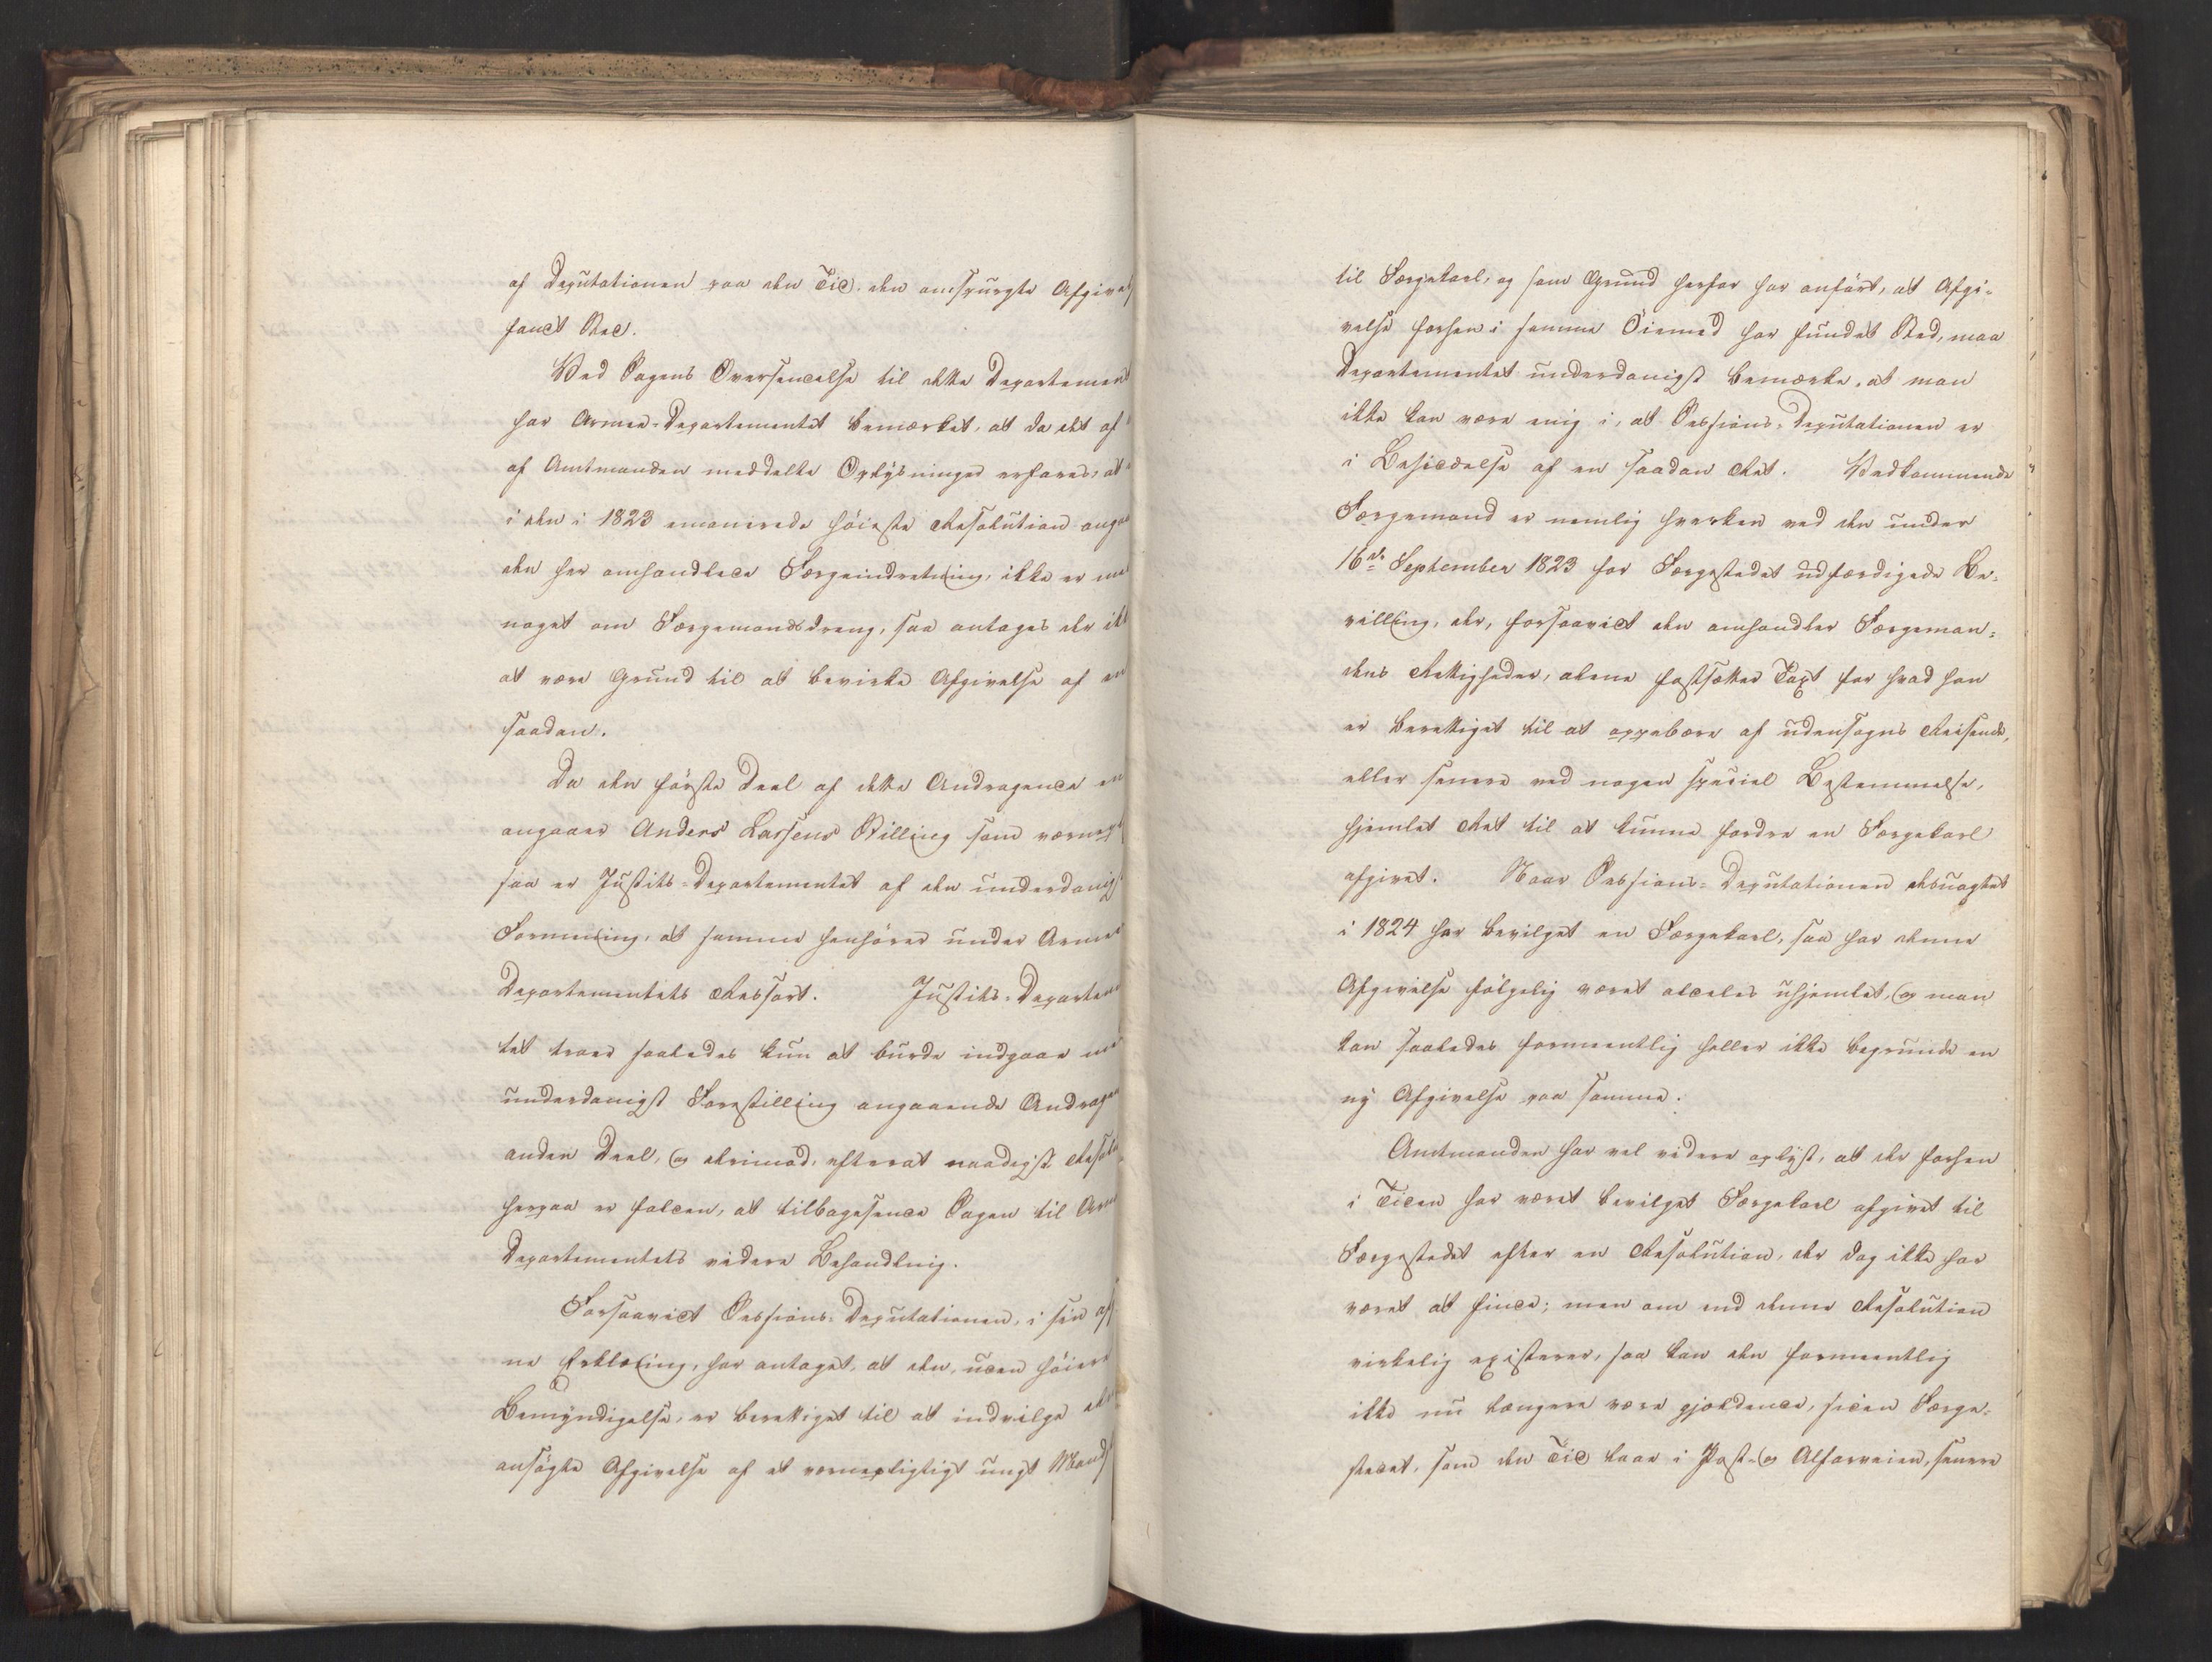 af Deputationen paa den Tid. den omspurgte Afgivels
fandt Sted.
Ved Sagens Oversendelse til dette Departement
har Armee-Departementet bemærket, at da det af
af Amtmanden meddelte Oplysninger erfares, at
i den i 1823 emanerede høieste Resolution anga
den her omhandlede Færgeindretning, ikke er
noget om Færgemandsdreng, saa antages der ikk
at være Grund til at bevirke Afgivelse af en
saadan.
Da den første Deel af dette Andragende en
angaaer Anders Larsens Stilling som værnepl
saa er Justits-Departementet af den underdanigs
Formening, at samme henhører under Armee
Departementets Ressort. Justits-Departemen
tet troer saaledes kun at burde indgaae med
underdanigst Forestilling angaaende Andragen
anden Deel, og derimod, efterat naadigst Resolu
herpaa er falden, at tilbagesende Sagen til Arme
Departementets videre Behandling.
Forsaavidt Sessions-Deputationen, i sin af
ne Erklæring, har antaget, at den, uden høiere
Bemyndigelse, er berettiget til at indvilge den
ansøgte Afgivelse af et værnepligtigt ungt Mands
til Færgekarl, og som Grund herfor har anført, at Afgi-
velse forhen i samme Öiemed har fundet Sted, maa
Departementet underdanigst bemærke, at man
ikke kan være enig i, at Sessions-Deputationen er
i Besiddelse af en saadan Ret. Vedkommende
Færgemand er nemlig hverken ved den under
16de September 1823 for Færgestedet udfærdigede Be-
villing, der, forsaavidt den omhandler Færgeman-
dens Rettigheder, alene fastsætter Taxt for hvad han
er berettiget til at oppebære af udensogns Reisende,
eller senere ved nogen speciel Bestemmelse,
hjemlet Ret til at kunne fordre en Færgekarl
afgivet. Naar Sessions-Deputationen desuagtet
i 1824 har bevilget en Færgekarl, saa har denne
Afgivelse følgelig været aldeles uhjemlet, og man
kan saaledes formeentlig heller ikke begrunde en
ny Afgivelse paa samme.
Amtmanden har vel videre oplyst, at der forhen
i Tiden har været bevilget Færgekarl afgivet til
Færgestedet efter en Resolution, der dog ikke har
været at finde; men om end denne Resolution
virkelig existerer, saa kan den formeentlig
ikke nu længere være gjældende, siden Færge-
stedet, som den Tid laae i Post- og Alfarveien, senere